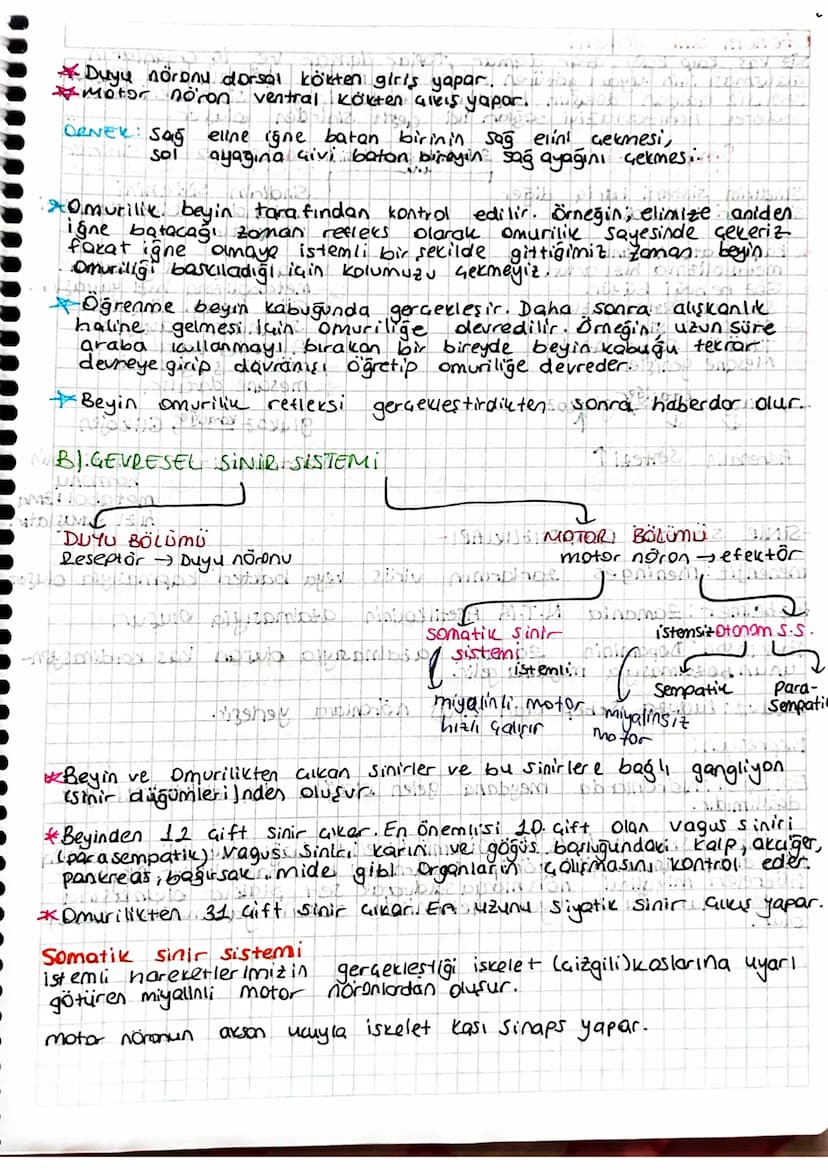 * Duyu nöronu dorsal kökten giriş yapar.
* Motor nöron ventral kökten çıkış yapar.
ÖRNEK: Sağ eline iğne batan birinin sağ elini çekmesi,
sol ayağına çivi batan bireyin sağ ayağını çekmesi.
* Omurilik beyin tarafından kontrol edilir. Örneğin; elimize aniden
iğne batacağı zaman refleks olarak omurilik sayesinde çekeriz
fakat iğne olmaya istemli bir şekilde gittiğimiz zaman beyin
omuriliği baskıladığı için kolumuzu çekmeyiz.
* Öğrenme beyin kabuğunda gerçekleşir. Daha sonra alışkanlık
haline gelmesi için omuriliğe devredilir. Örneğin; uzun süre
araba kullanmayı bırakan bir bireyde beyin kabuğu tekrar
devreye girip davranışı öğretip omuriliğe devreder.
* Beyin omurilik refleksi gerçekleştirdikten sonra haberdar olur.
B). ÇEVRESEL SİNİR SİSTEMİ
DUYU BÖLÜMÜ
Reseptör → Duyu nöronu
MOTOR BÖLÜMÜ
motor nöron → efektör
somatik sinir
sistemi
istemli
miyalinli motor
hızlı çalışır
istensiz Otonom S.S.
Sempatik
Para-
Sempatik
miyalinsiz
motor
* Beyin ve Omurilikten çıkan sinirler ve bu sinirlere bağlı gangliyon
(sinir düğümleri)nden oluşur.
* Beyinden 12 çift sinir çıkar. En önemlisi 10. çift olan vagus siniri
(parasempatik) Vagus siniri karın ve göğüs boşluğundaki kalp, akciğer,
pankreas, bağırsak, mide gibi organların çalışmasını kontrol eder.
* Omurilikten 31 çift sinir çıkar. En uzunu siyatik sinir çıkış yapar.
Somatik sinir sistemi
istemli hareketlerimizin gerçekleştiği iskelet (çizgili) kaslarına uyarı
götüren miyalinli motor nöronlardan oluşur.
motor nöronun akson ucuyla iskelet kası sinaps yapar.